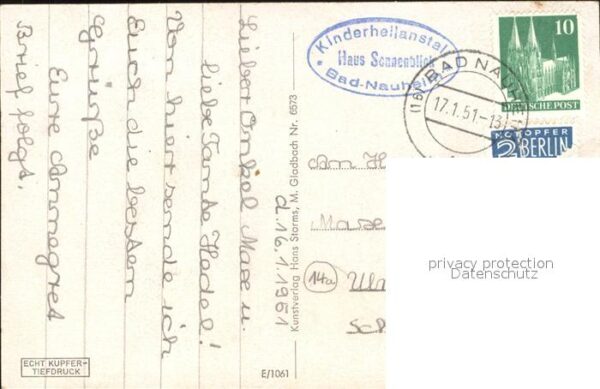 Kinderheilanstalt
Haus Sonnenblick
Bad-Nauheim
10
DEUTSCHE POST
BAD NAUHEIM
17.1.51-13
NOTOPFER
2 BERLIN
d. 16.1.1951
Lieber Onkel Max u.
liebe Tante Hedel!
Von hier sende ich
Euch die besten
Grüße
Eure Annegret
Brief folgt.
Kunstverlag Hans Storms, M. Gladbach Nr. 6573
14a
privacy protection
Datenschutz
ECHT KUPFER-
TIEFDRUCK
E/1061